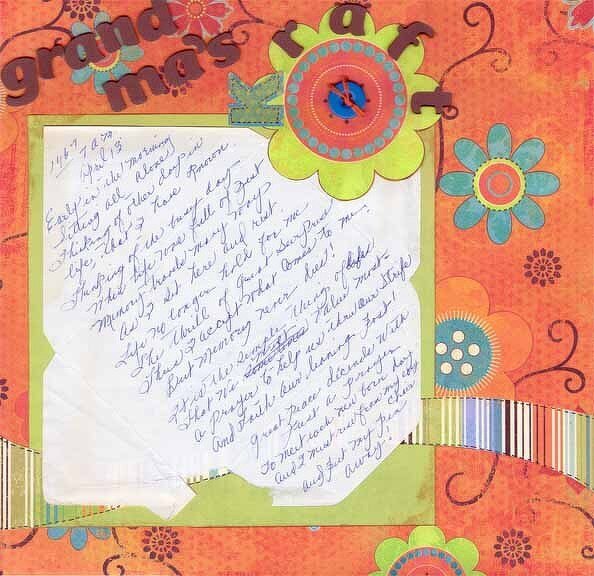 grand
ma's
kraft
7 a m
April 13
Early in the morning
Sitting all alone,
Thinking of other days in
life, that I have known.
Thinking of the busy day
When life was full of Zest
Memory travels many Ways
As I sit here and rest.
Life no longer hold for me
The thrill of Great Surprise
Thus I accept What comes to me.
But Memory never dies!
It is the simpler things of life
That we Value most-
a Prayer to help us thru Our Strife
And Faith Our leaning Post!
Great Peace decends With
Just a Prayer
To meet each new born day
And I must rise from my Chair
And put my pen
away!